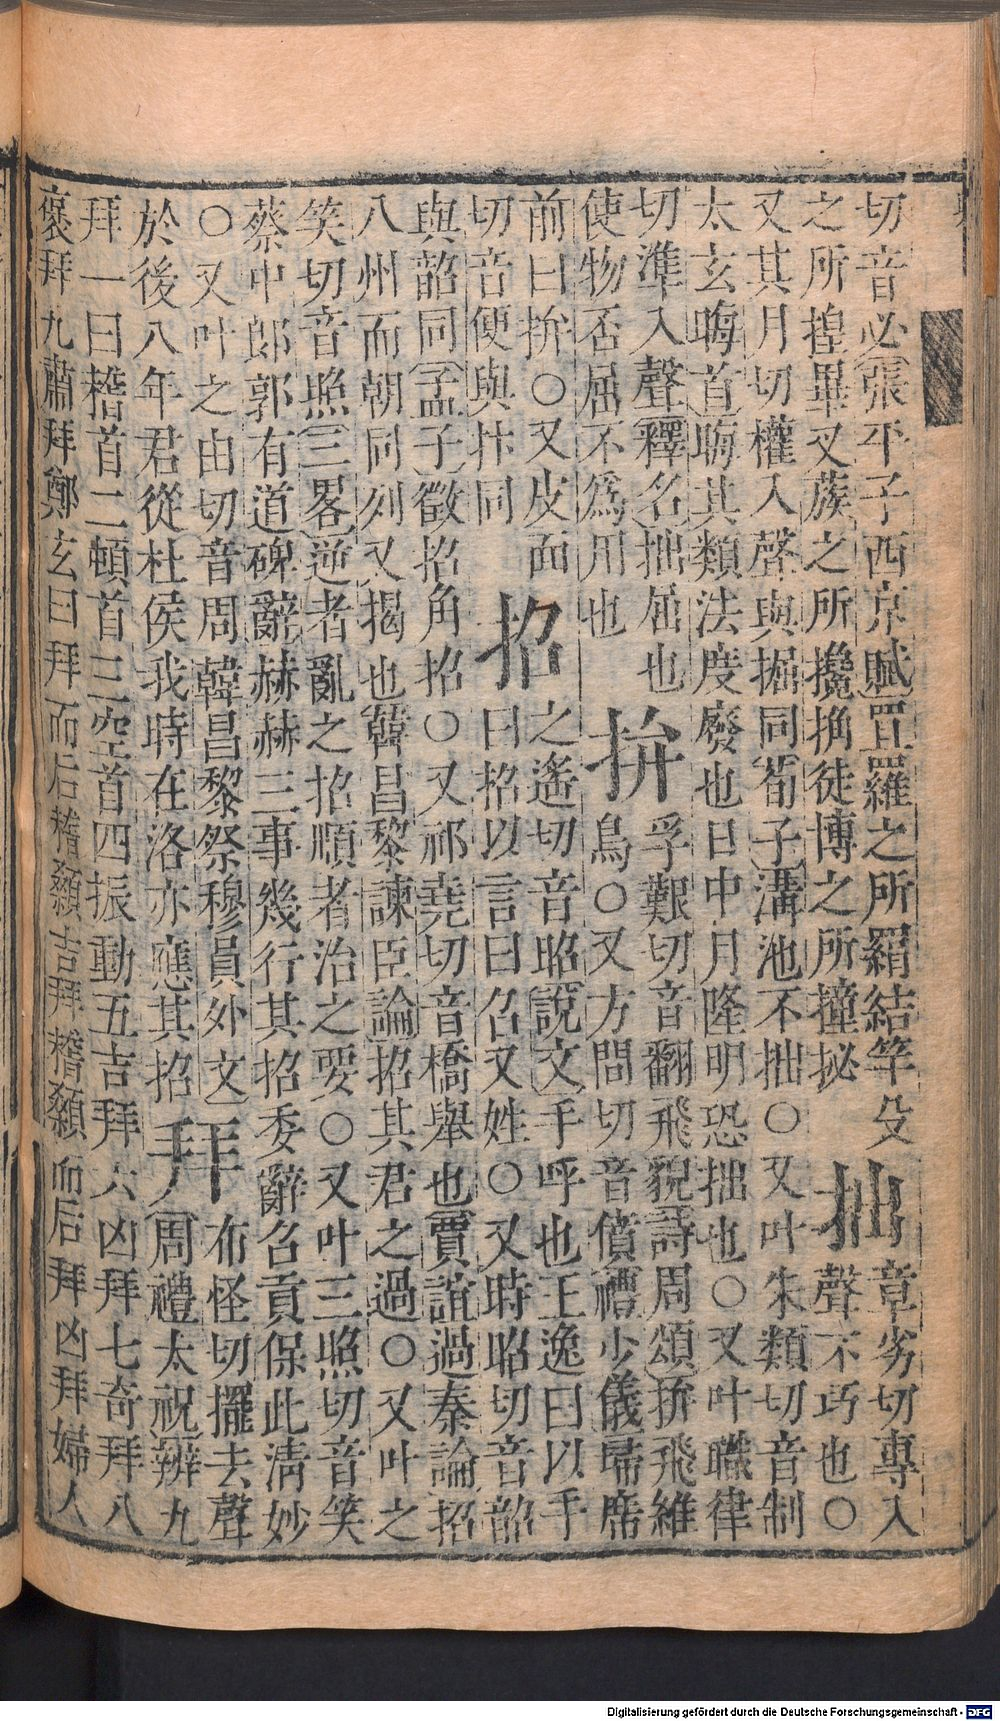 切音必張平子西京賦罝羅之所羂結竿殳拙章劣切專入
之所揘畢又蔟之所攙捔徒博之所撞㧙拙聲不巧也○
又其月切權入聲與掘同荀子溝池不拙○又叶朱類切音制
太玄晦首晦其類法度廢也日中月隆明恐拙也○又叶職律
切準入聲釋名拙屈也拚孚艱切音翻飛貌詩周頌拚飛維
使物否屈不爲用也拚鳥○又方問切音僨禮少儀埽席
前曰拚○又皮面招之遙切音昭說文手呼也王逸曰以手
切音便與抃同招曰招以言曰召又姓○又時昭切音韶
與韶同孟子徵招角招○又祁堯切音橋舉也賈誼過秦論招
八州而朝同列又揭也韓昌黎諫臣論招其君之過○又叶之
笑切音照三畧逆者亂之招順者治之要○又叶三照切音笑
蔡中郎郭有道碑辭赫赫三事幾行其招委辭召貢保此淸妙
○又叶之由切音周韓昌黎祭穆員外文拜布怪切擺去聲
於後八年君從杜侯我時在洛亦應其招拜周禮太祝辨九
拜一曰䭫首二頓首三空首四振動五吉拜六凶拜七奇拜八
褒拜九肅拜鄭玄曰拜而后稽顙吉拜稽顙而后拜凶拜婦人
Digitalisierung gefördert durch die Deutsche Forschungsgemeinschaft - DFG